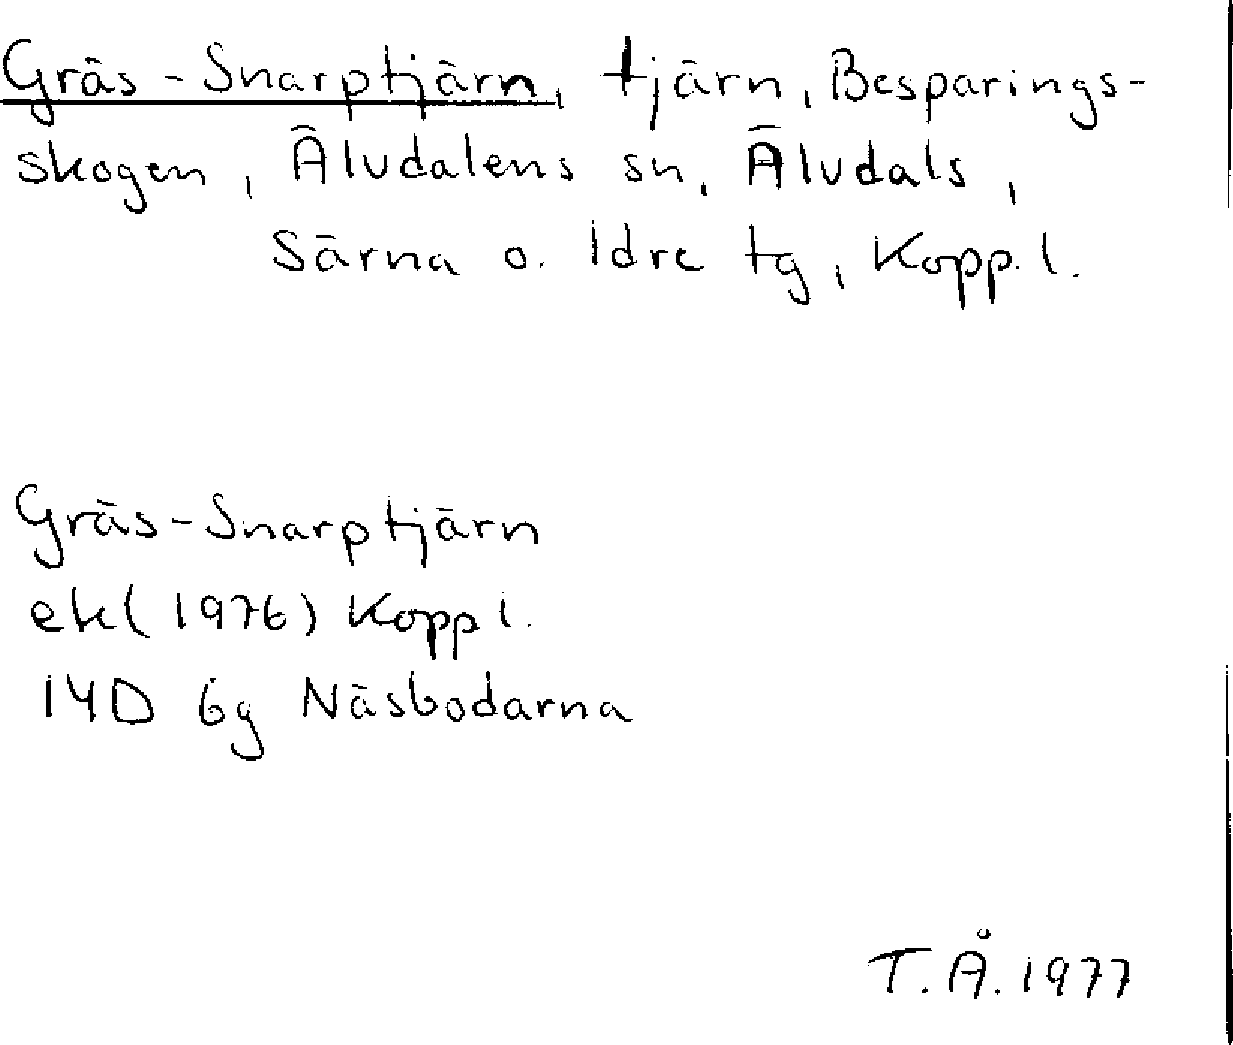 Gräs-Snarptjärn, tjärn, Besparings-
skogen, Älvdalens sn, Älvdals,
Särna o. Idre tg, Kopp. l.
Gräs-Snarptjärn
ek (1976) Kopp l.
14D 6g Näsbodarna
T.Å. 1977